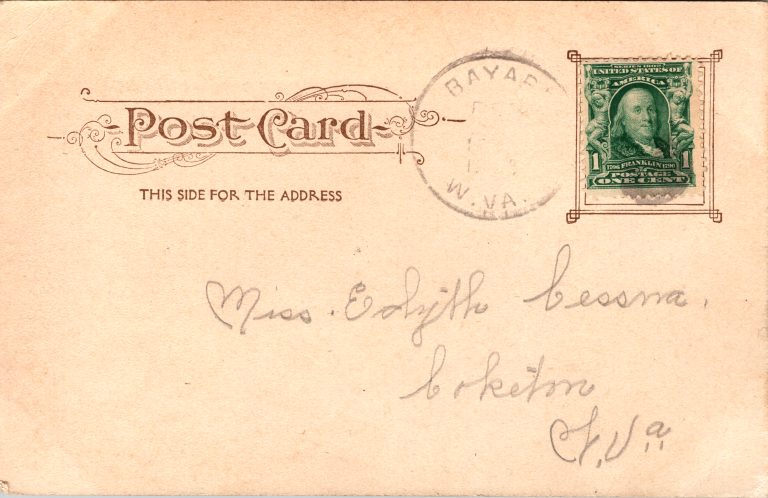 Post Card
THIS SIDE FOR THE ADDRESS
BAYAR
W. VA.
SERIES 1902
UNITED STATES OF
AMERICA
1 1706 FRANKLIN 1790 1
POSTAGE
ONE CENT
Miss. Edyth Cessna.
Coketon
W. Va